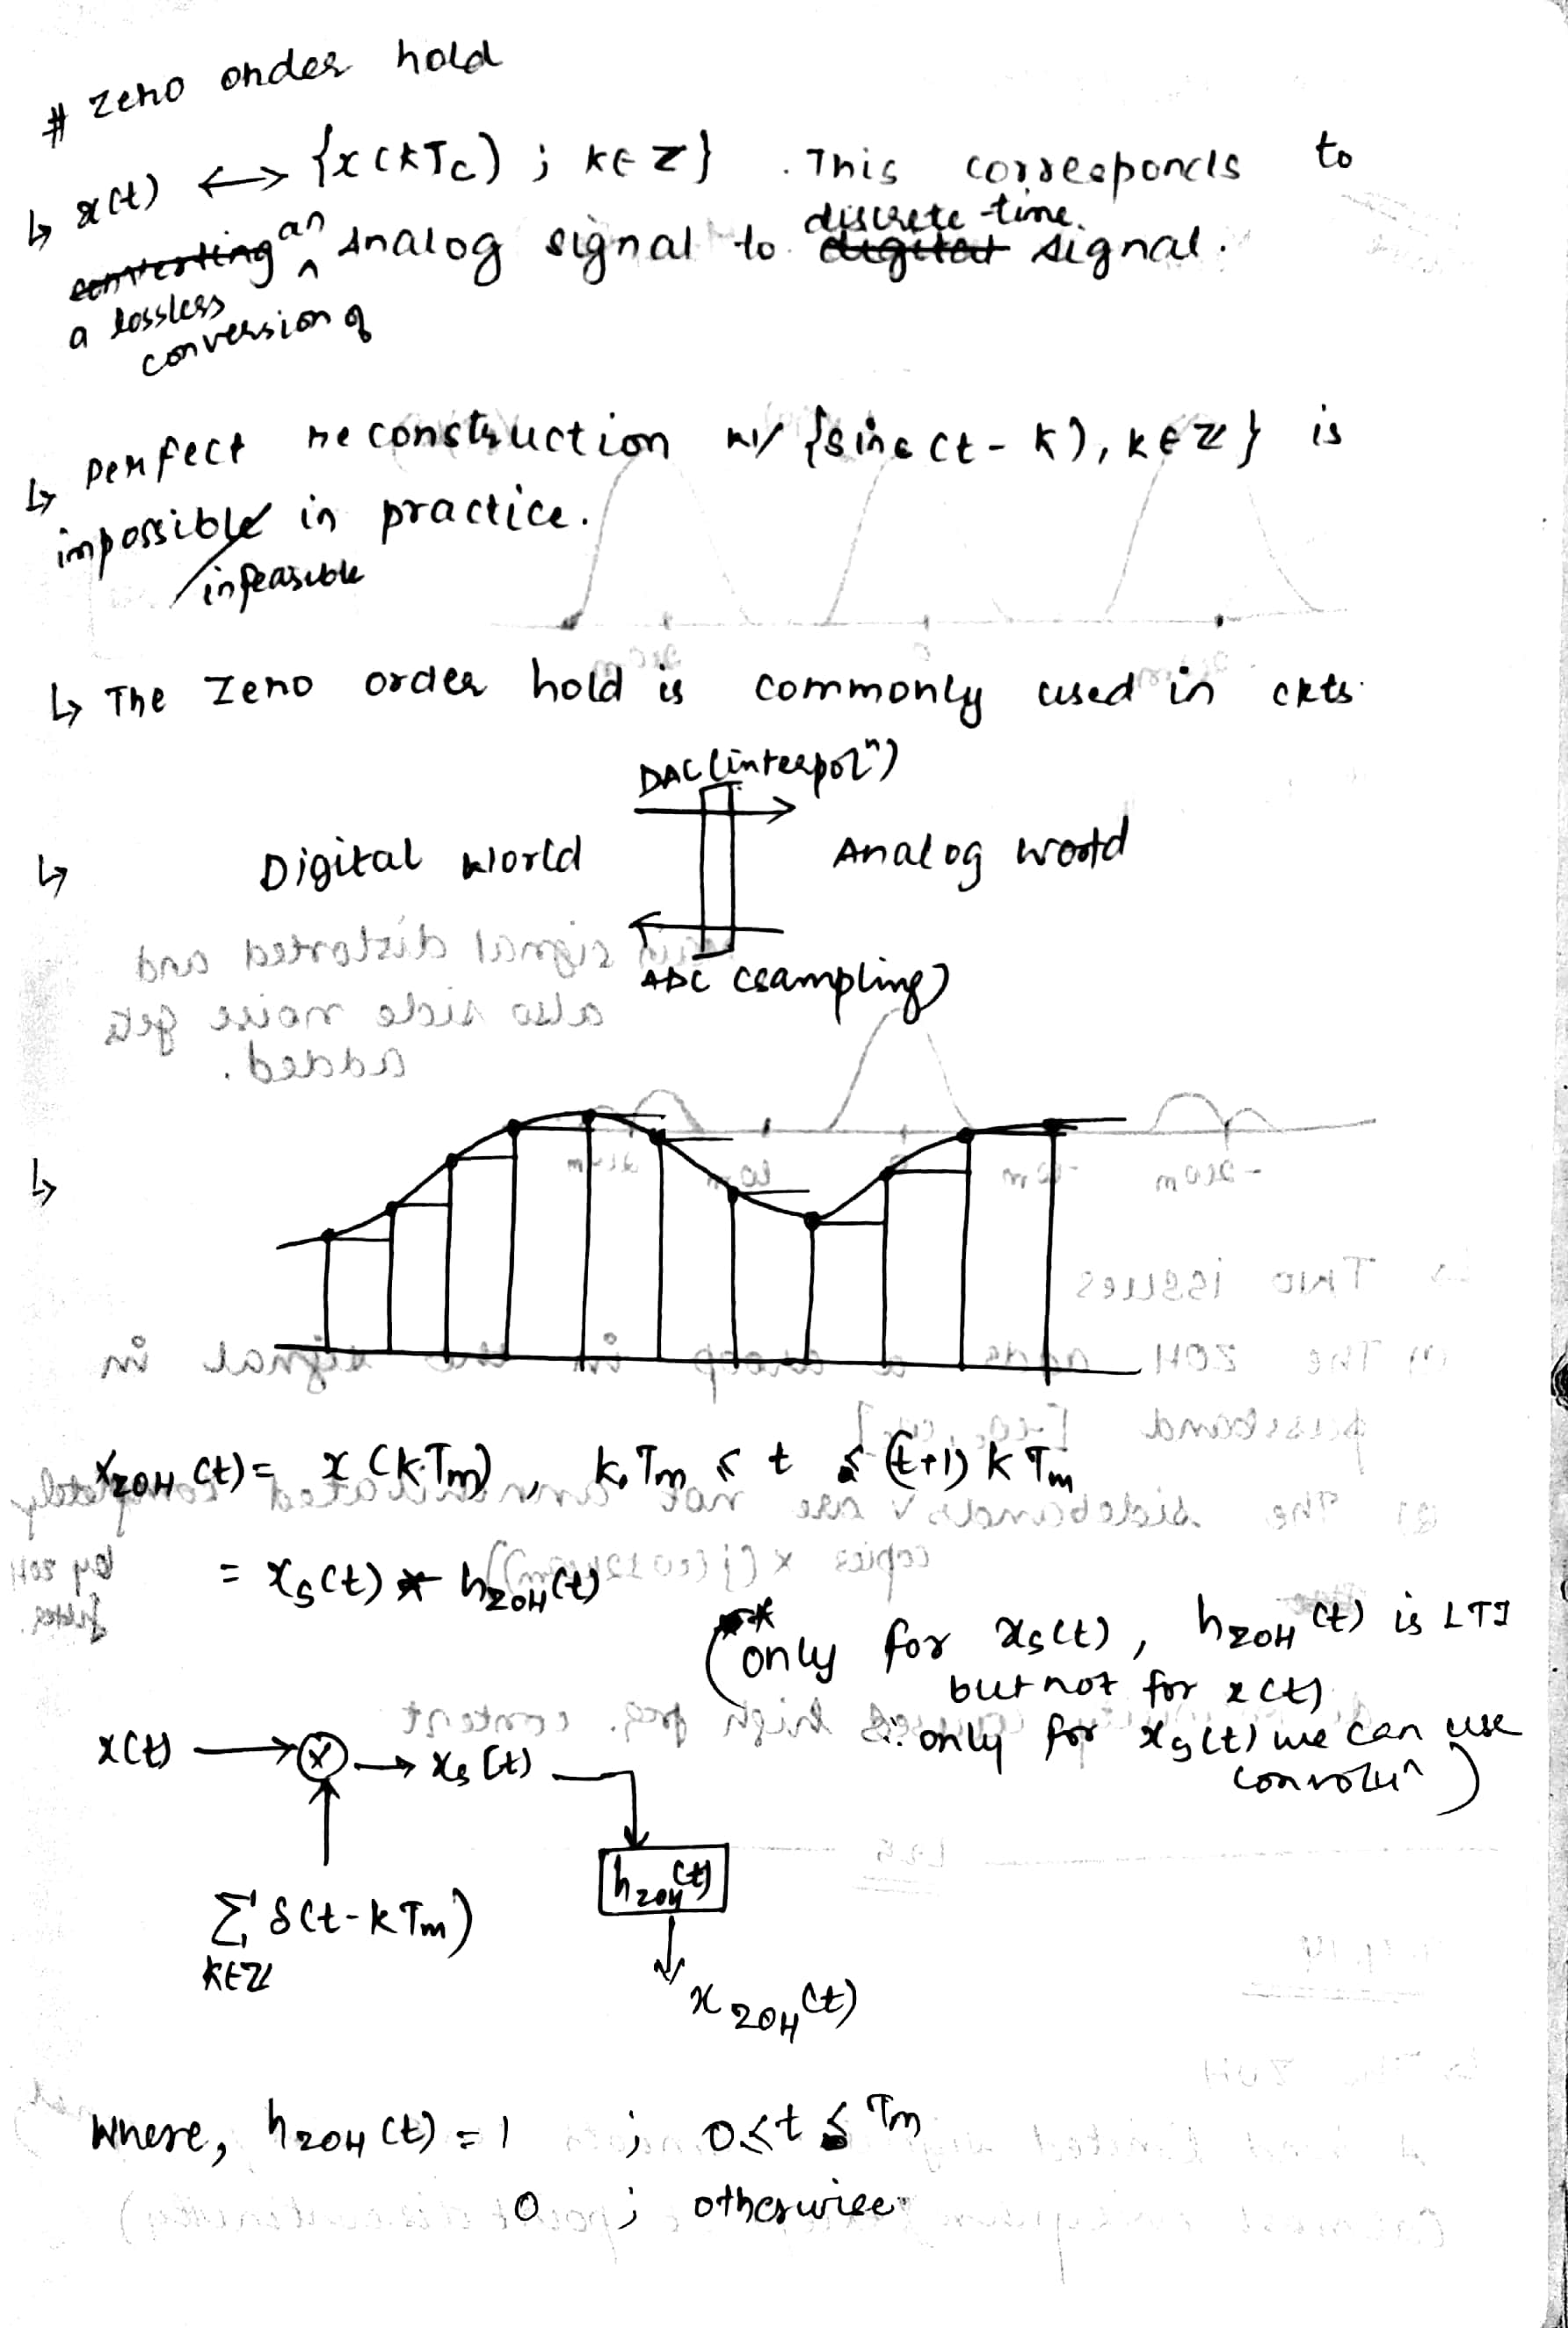 # zero order hold
↳ x(t) ↔ {x(kTc) ; k∈Z} . This corresponds to
converting an Analog signal to digital discrete-time signal.
a lossless
conversion of
↳ perfect reconstruction w/ {sinc(t-k), k∈Z} is
impossible in practice.
/infeasible
↳ The zero order hold is commonly used in ckts.
DAC (interpolⁿ)
↳ Digital World Analog World
ADC (sampling)
↳
x_ZOH(t) = x(kTm), k.Tm ≤ t ≤ (t+1) k Tm
= x_s(t) * h_ZOH(t)
(** only for x_s(t), h_ZOH(t) is LTI
but not for x(t)
∴ only for x_s(t) we can use
convoluⁿ)
x(t) → ⊗ → x_s(t)
h_ZOH(t)
Σ δ(t-kTm)
k∈Z
x_ZOH(t)
Where, h_ZOH(t) = 1 ; 0≤t≤Tm
0 ; otherwise.